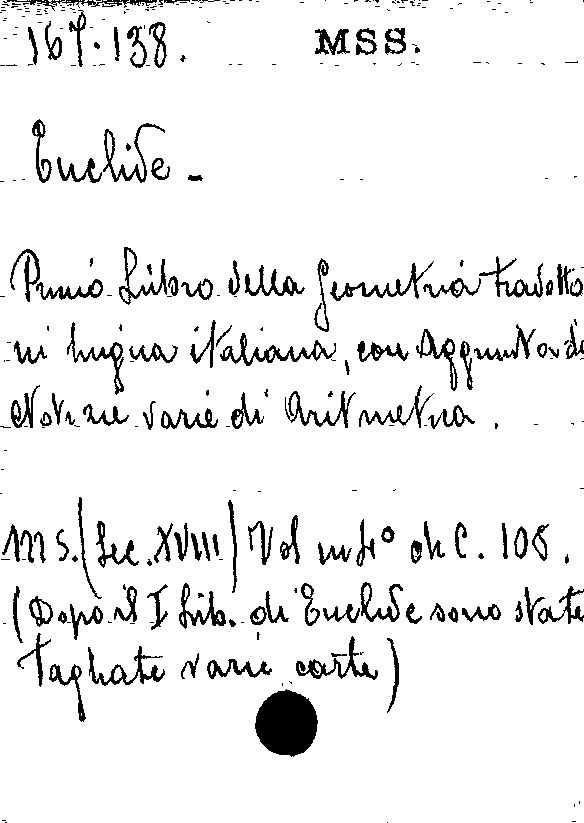 167.138. MSS.
Euclide -
Primo Libro della Geometria tradotto
in lingua italiana, con Aggiunta di
Notizie varie di Aritmetica.
MS. (Sec. XVIII) Vol in f° di C. 108.
(Dopo il I Lib. di Euclide sono state
tagliate varie carte)